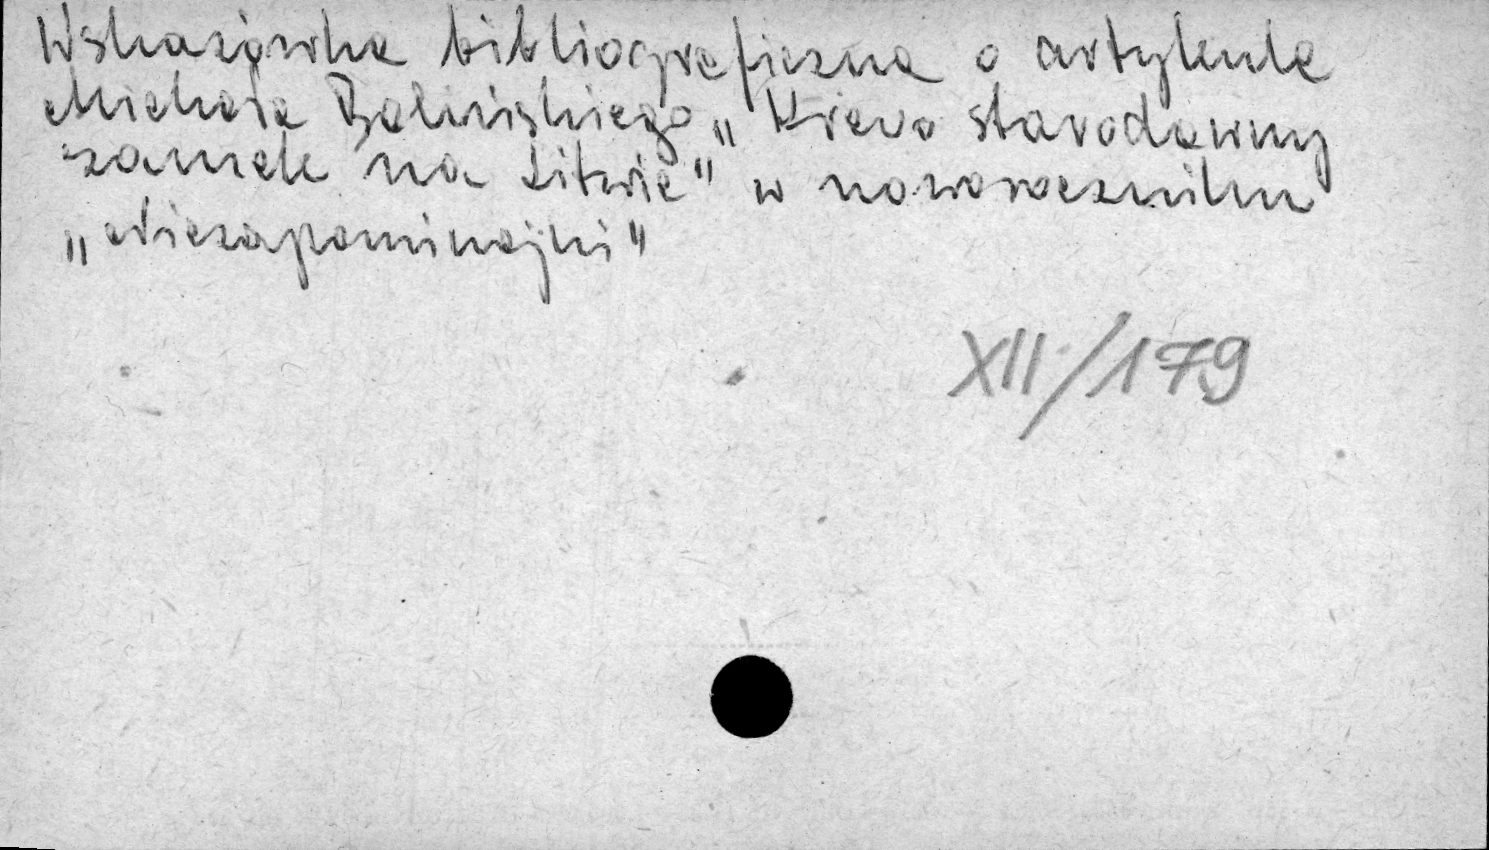 Wskazówka bibliograficzna o artykule
Michała Balińskiego „Krewo starodawny
zamek na Litwie" w noworoczniku
„Niezapominajki"
XII/179